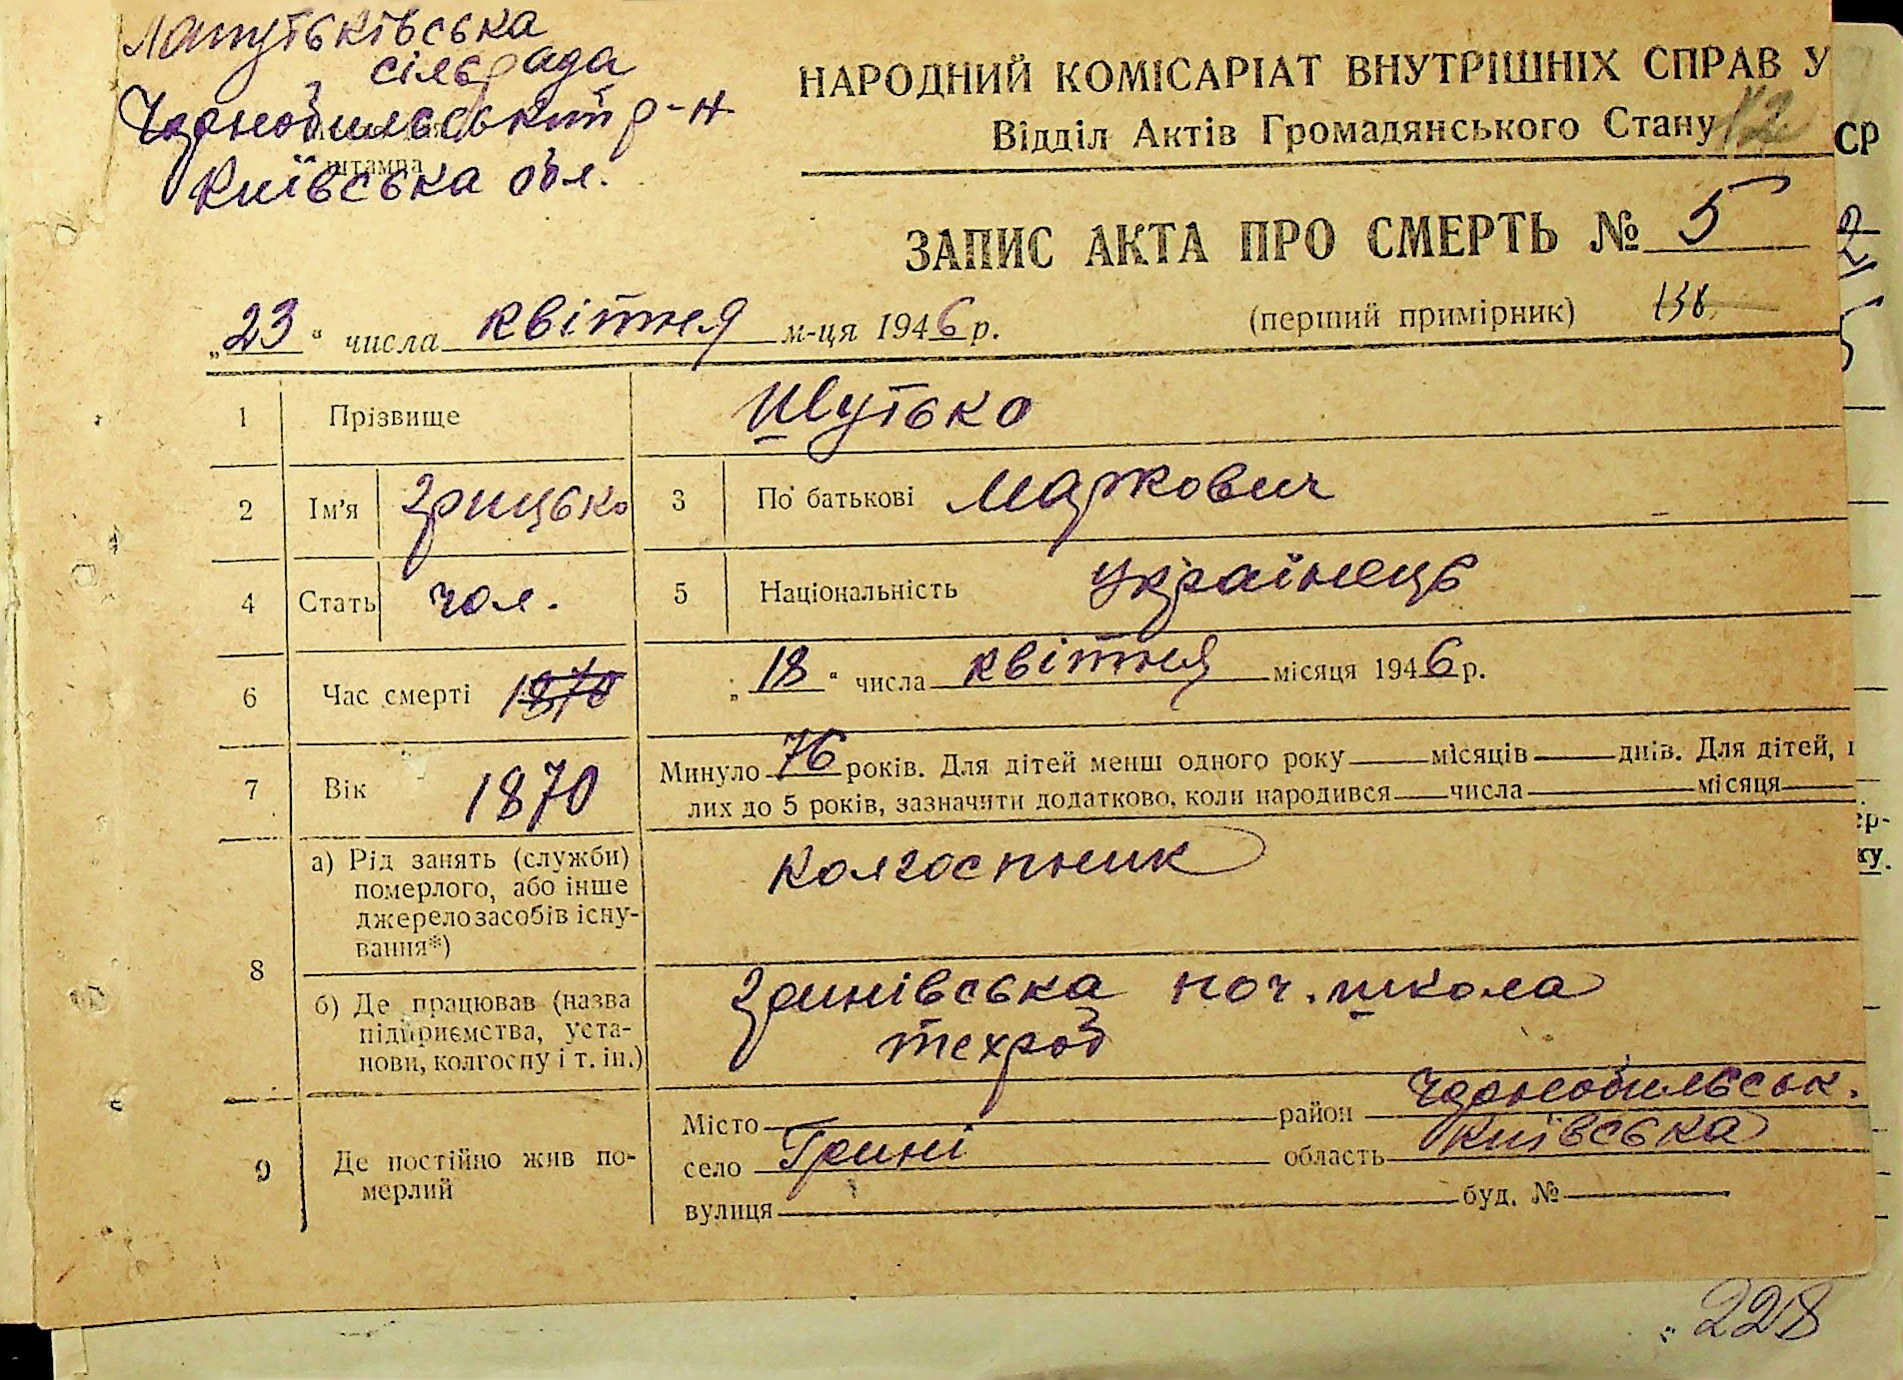 Лапутьківська
сільрада
Чорнобильський р-н
штампа
Київська обл.
НАРОДНИЙ КОМІСАРІАТ ВНУТРІШНІХ СПРАВ У
Відділ Актів Громадянського Стану 12
СР
ЗАПИС АКТА ПРО СМЕРТЬ № 5
„23“ числа квітня м-ця 1946 р. (перший примірник) 138
1 Прізвище Шутько
2 Ім'я Грицько 3 По батькові Маркович
4 Стать чол. 5 Національність Українець
6 Час смерті 1870 „18“ числа квітня місяця 1946 р.
7 Вік 1870 Минуло 76 років. Для дітей менш одного року місяців днів. Для дітей,
лих до 5 років, зазначити додатково, коли народився числа місяця
8 а) Рід занять (служби)
померлого, або інше
джерело засобів існу-
вання*)
Колгоспник
б) Де працював (назва
підприємства, уста-
нови, колгоспу і т. ін.)
Гринівська поч. школа
техроб
9 Де постійно жив по-
мерлий
Місто район Чорнобильськ.
село Грині область Київська
вулиця буд. №
ер-
ку.
228